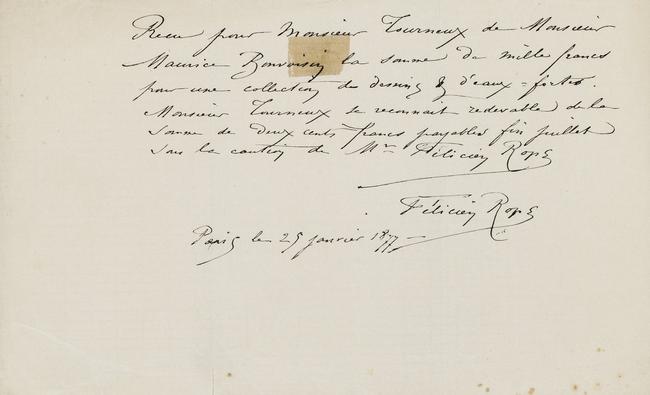 Recu pour Monsieur Tourneux de Monsieur
Maurice Bonvoisin la somme de mille francs
pour une collection de dessins & d'eaux=fortes.
Monsieur Tourneux se reconnait redevable de la
somme de deux cents francs payables fin juillet
sous la caution de Mr Félicien Rops
Félicien Rops
Paris le 25 janvier 1877